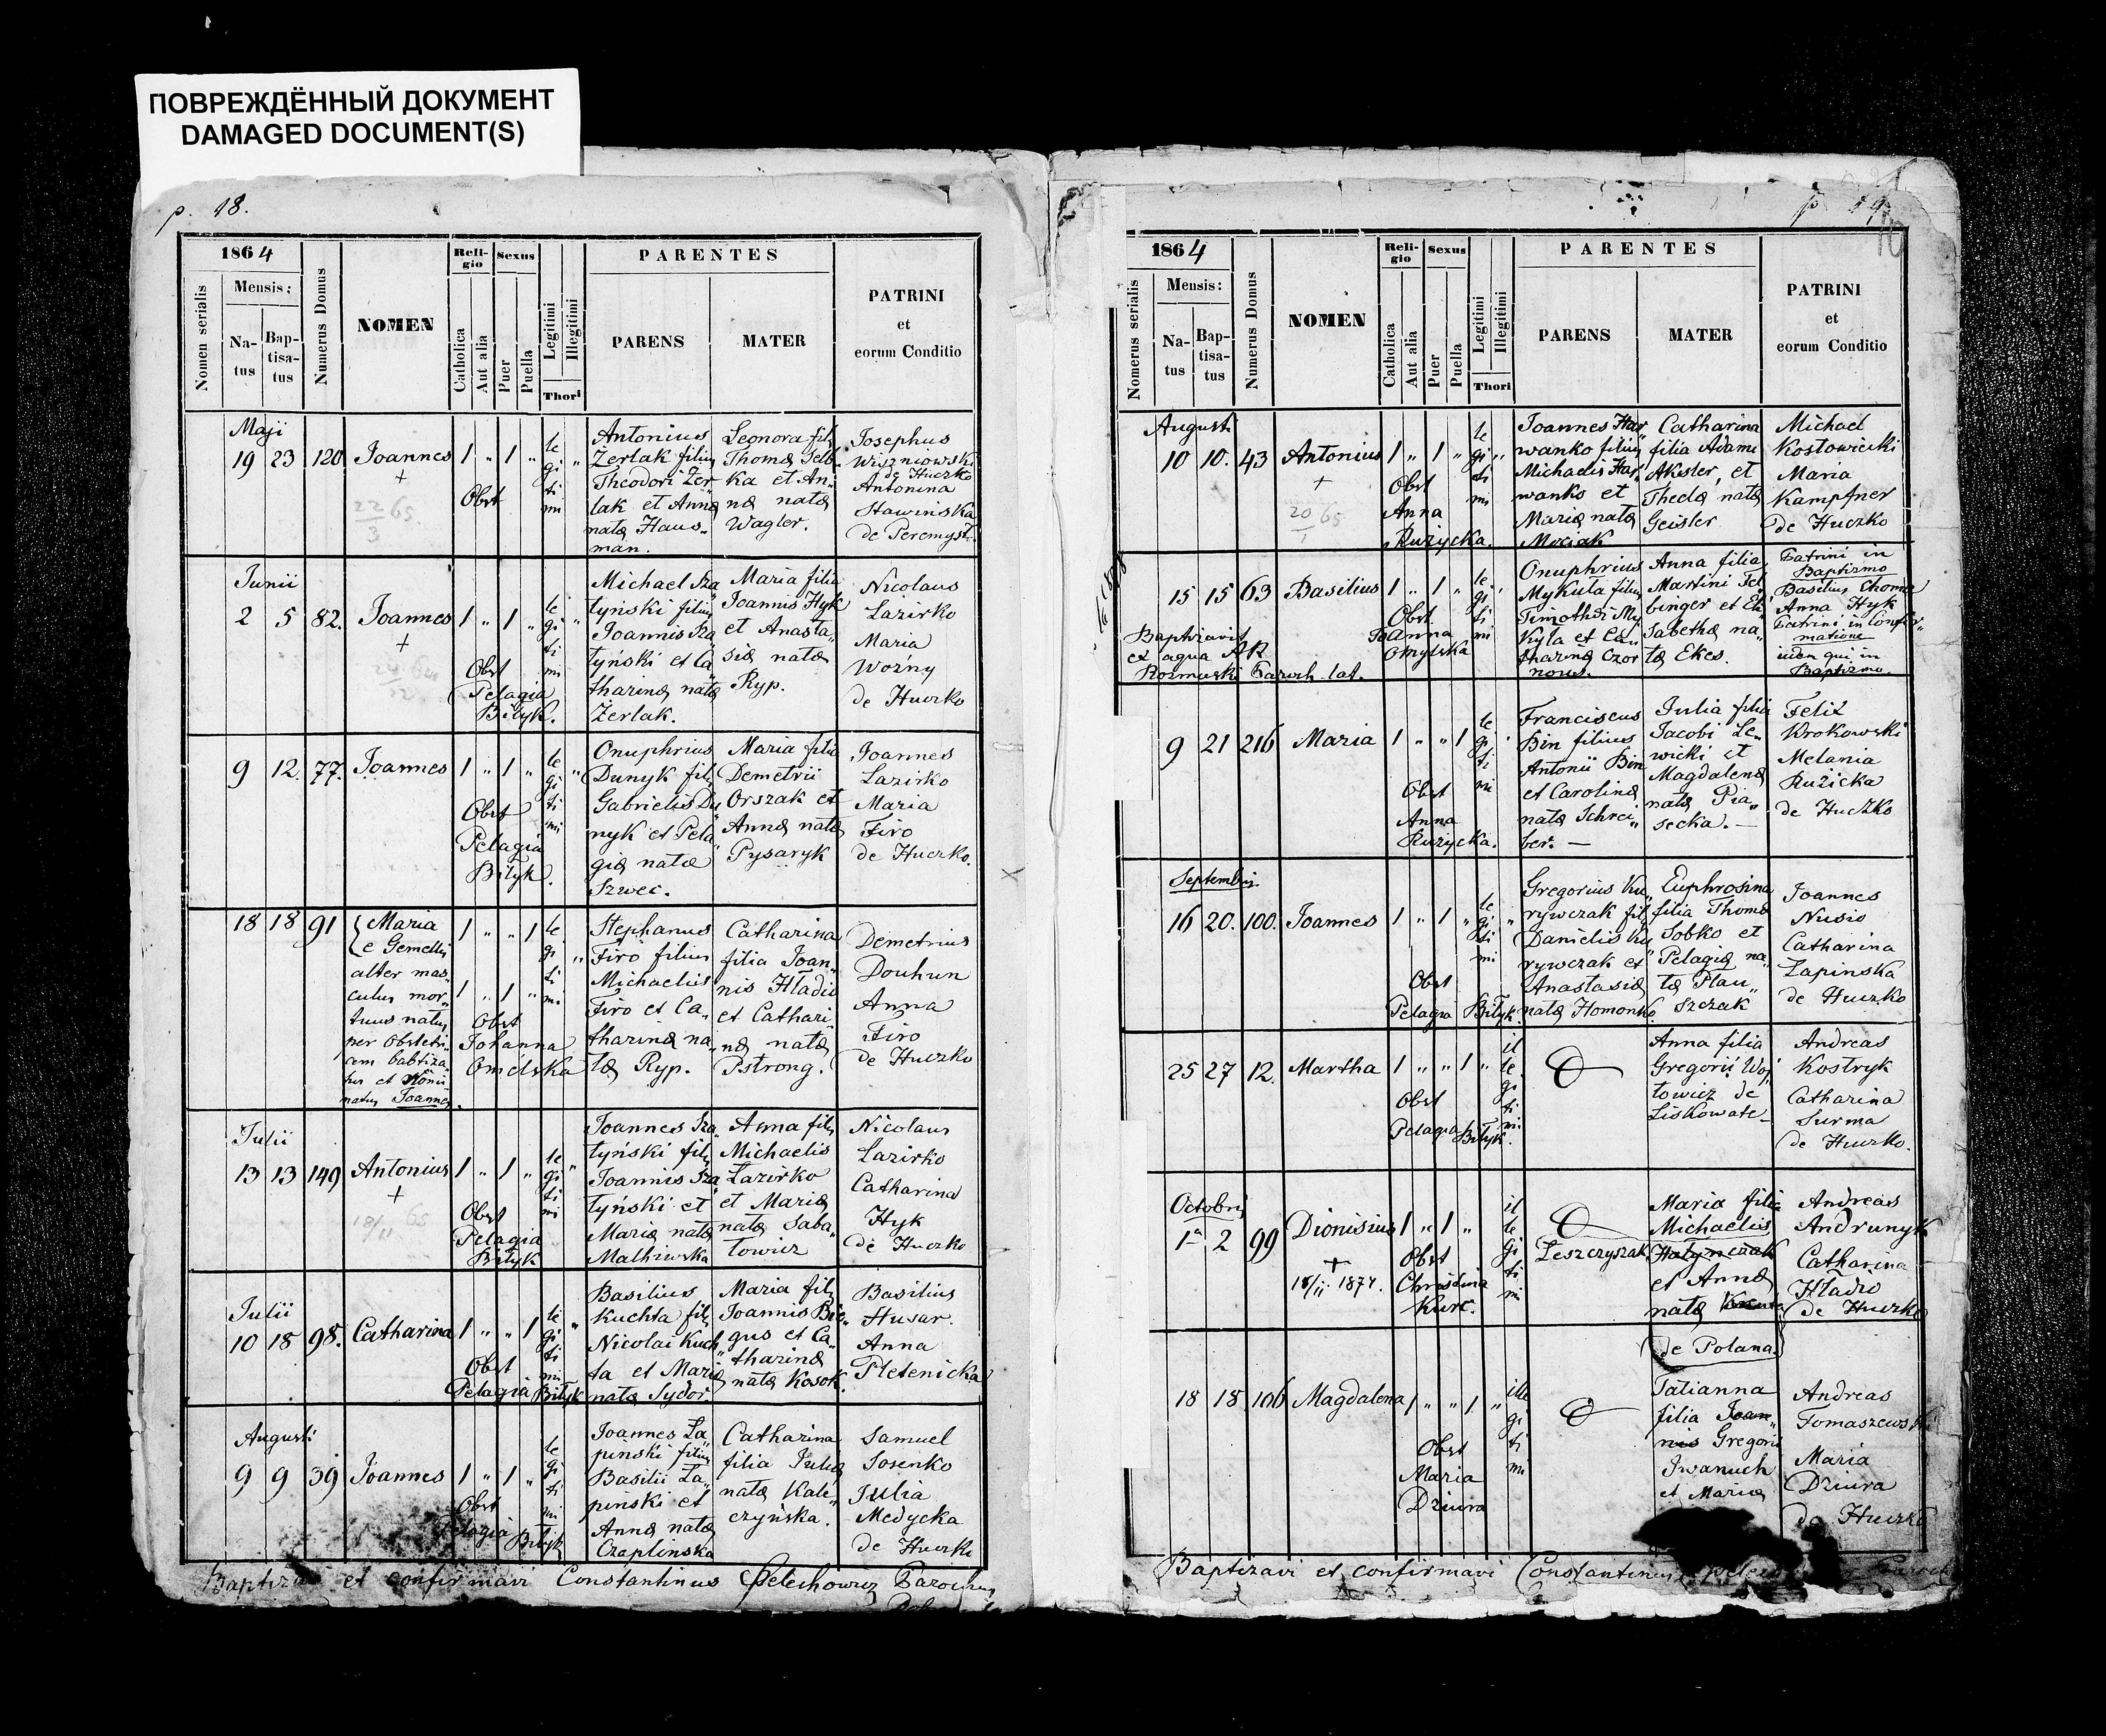 ПОВРЕЖДЁННЫЙ ДОКУМЕНТ
DAMAGED DOCUMENT(S)
p. 18.
1864
Nomen serialis
Mensis:
Na-
tus
Bap-
tisa-
tus
Numerus Domus
NOMEN
Reli-
gio
Catholica
Aut alia
Sexus
Puer
Puella
Legitimi
Illegitimi
Thori
PARENTES
PARENS
MATER
PATRINI
et
eorum Conditio
Maji
19 23 120 Joannes 1 " 1 "
+
22/3 65.
Obst
le
gi "
ti
mi
Antonius
Zerlak filius
Theodori Zer
lak et Annæ
natæ Haus-
man.
Leonora fil,
Thomæ Selb-
ka et An-
næ natæ
Wagler.
Josephus
Wiszniowski
de Huczko
Antonina
Stawinska
de Peremyśl.
Junii
2 5 82. Joannes 1 " 1 "
+
Obst
Pelagia
Bilyk.
le
gi "
ti
mi
Michael Sza
tyński filius
Joannis Sza
tyński et Ca
tharinæ natæ
Zerlak.
Maria filia
Joannis Hyk
et Anasta,
siæ natæ
Ryp.
Nicolaus
Lazirko
Maria
Wozny
de Huczko
9 12. 77. Joannes 1 " 1 "
Obst
Pelagia
Bilyk.
le
gi "
ti
mi
Onuphrius
Dunyk fil,
Gabrielis Du
nyk et Pela
giæ natæ
Szwec.
Maria filia
Demetrii
Orszak et
Annæ natæ
Pysaryk
Joannes
Lazirko
Maria
Firo
de Huczko.
18 18 91 Maria 1 " " 1
e Gemellis
alter mas,
culus mor,
tuus natus
per Obstetri-
cem babtiza-
tus et Nomi-
natus Joannes.
1 " 1 "
Obst
Johanna
Omelska
le
gi "
ti
mi
Stephanus
Firo filius
Michaelis
Firo et Ca,
tharinæ na,
tæ Ryp.
Catharina
filia Joan,
nis Hladio
et Cathari-
næ natæ
Pstrong.
Demetrius
Douhun
Anna
Firo
de Huczko
Julii
13 13 149 Antonius 1 " 1 "
+
18/11 65
Obst
Pelagia
Bilyk
le
gi "
ti
mi
Joannes Sza,
tyński fil,
Joannis Sza
tyński et
Mariæ natæ
Malhiwska
Anna fil,
Michaelis
Lazirko
et Mariæ
natæ Saba,
towicz
Nicolaus
Lazirko
Catharina
Hyk
de Huczko
Julii
10 18 98. Catharina 1 " " 1
Obst
Pelagia Bilyk
le
gi "
ti
mi
Basilius
Kuchta fil,
Nicolai Kuch
ta et Mariæ
natæ Sydor.
Maria fil,
Joannis Bie,
gus et Ca,
tharinæ
natæ Kosok.
Basilius
Husar.
Anna
Pletenicka
Augusti
9 9 39 Joannes 1 " 1 "
Obst
Pelagia Bilyk
le
gi
ti
mi
Joannes La,
pinski filius
Basilii La,
pinski et
Annæ natæ
Czaplinska
Catharina
filia Julii
natæ Kale,
czyńska.
Samuel
Sosenko
Julia
Medycka
de Huczko
et confirmavi Constantinus Parochus
p 19.
1864
Nomerus serialis
Mensis:
Na-
tus
Bap-
tisa-
tus
Numerus Domus
NOMEN
Reli-
gio
Catholica
Aut alia
Sexus
Puer
Puella
Legitimi
Illegitimi
Thori
PARENTES
PARENS
MATER
PATRINI
et
eorum Conditio
Augusti
10 10. 43 Antonius 1 " 1 "
+
20/1 65
Obst
Anna
Ružycka.
le
gi "
ti
mi
Joannes Har
wanko filius
Michaelis Har,
wanko et
Mariæ natæ
Mociak
Catharina
filia Adami
Aksler, et
Theclæ natæ
Geisler
Michael
Kostowiecki
Maria
Kampfner
de Huczko
15 15 63 Basilius 1 " 1 "
Obst
Joanna
Omylska
Baptizavit
ex aqua AR
Rozmuski Paroch. lat.
le
gi
ti
mi
Onuphrius
Mykuta filius
Timothei My
kyta et Ca,
tharinæ Czor
nous.
Anna filia
Martini Fel
binger et Eli
sabethæ na,
tæ Ekes.
Patrini in
Baptismo
Basilius Choma
Anna Hyk
Patrini in Confir,
matione
iidem qui in
Baptismo.
9 21 216 Maria 1 " " 1
Obst
Anna
Ružycka.
le
gi
ti
mi
Franciscus
Bin filius
Antonii Bin
et Carolinæ
natæ Schrei,
ber. —
Julia filia
Jacobi Le-
wicki et
Magdalenæ
natæ Pia,
secka. —
Felix
Krokowski
Melania
Ružicka
de Huczko
Septembris
16 20. 100. Joannes 1 " 1 "
Obst
Pelagia Bilyk
le
gi "
ti
mi
Gregorius Ku,
rywczak fil,
Danielis Ku
rywczak et
Anastasiæ
natæ Homonko
Euphrosina
filia Thomæ
Sobko et
Pelagiæ na,
tæ Plau,
szczak
Joannes
Nusio
Catharina
Zapinska
de Huczko
25 27 12. Martha 1 " " 1 "
Obst
Pelagia Bilyk.
il
le
gi
ti
mi
Anna filia
Gregorii Woj
towicz de
Liskowate
Andreas
Kostryk
Catharina
Surma
de Huczko.
Octobris
1a 2 99 Dionisius 1 " 1 "
+
1877.
Obst
Christina
Kurc.
il
le
gi
ti
mi
Leszczyszak
Maria filia
Michaelis
Hatynczak
et Annæ
natæ
de Polana.
Andreas
Andrunyk
Catharina
Hladio
de Huczko
18 18 106 Magdalena 1 " " 1 "
Obst
Maria
Dziura
ille
gi
ti
mi
Tatianna
filia Joan,
nis Gregorii
Iwanuch
et Mariæ
Andreas
Tomaszewski
Maria
Dziura
de Huczko
Baptizavi et confirmavi Constantinus